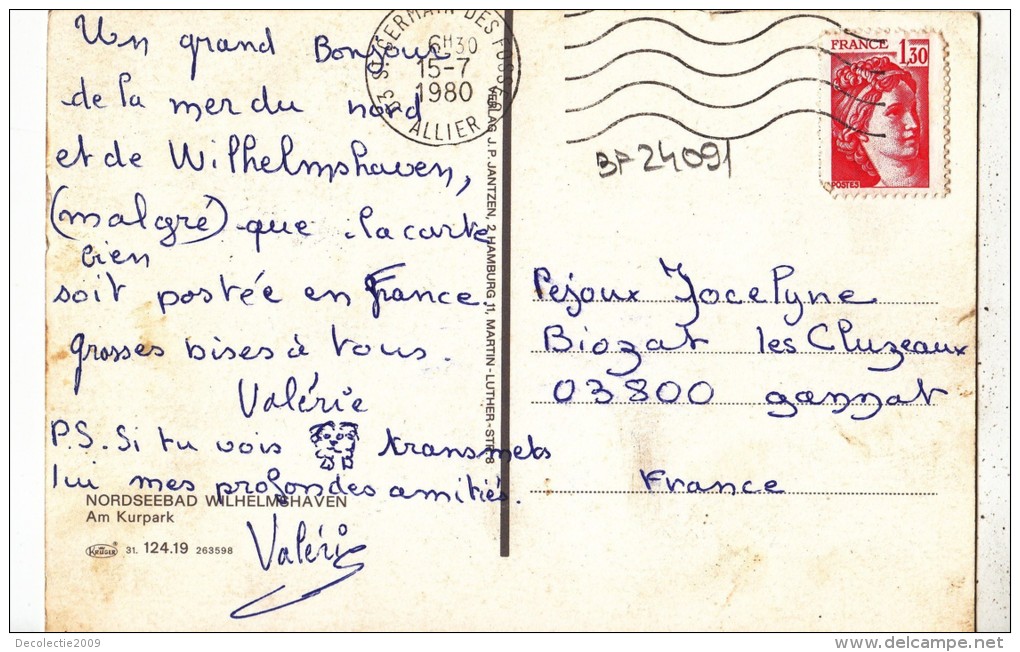 Un grand Bonjour
de la mer du nord
et de Wilhelmshaven,
(malgré) que la carte
bien
soit postée en France.
grosses bises à tous.
Valérie
P.S. Si tu vois transmets
lui mes profondes amitiés.
Valérie
NORDSEEBAD WILHELMSHAVEN
Am Kurpark
KRÜGER 31. 124.19 263598
VERLAG J.P. JANTZEN, 2 HAMBURG 11, MARTIN-LUTHER-STR. 8
03 ST GERMAIN DES FOSSES
6H30
15-7
1980
ALLIER
FRANCE
1,30
POSTES
BF 24091
Pejoux Jocelyne
Biozat les Cluzeaux
03800 gannat
France
Decolectie2009
www.delcampe.net